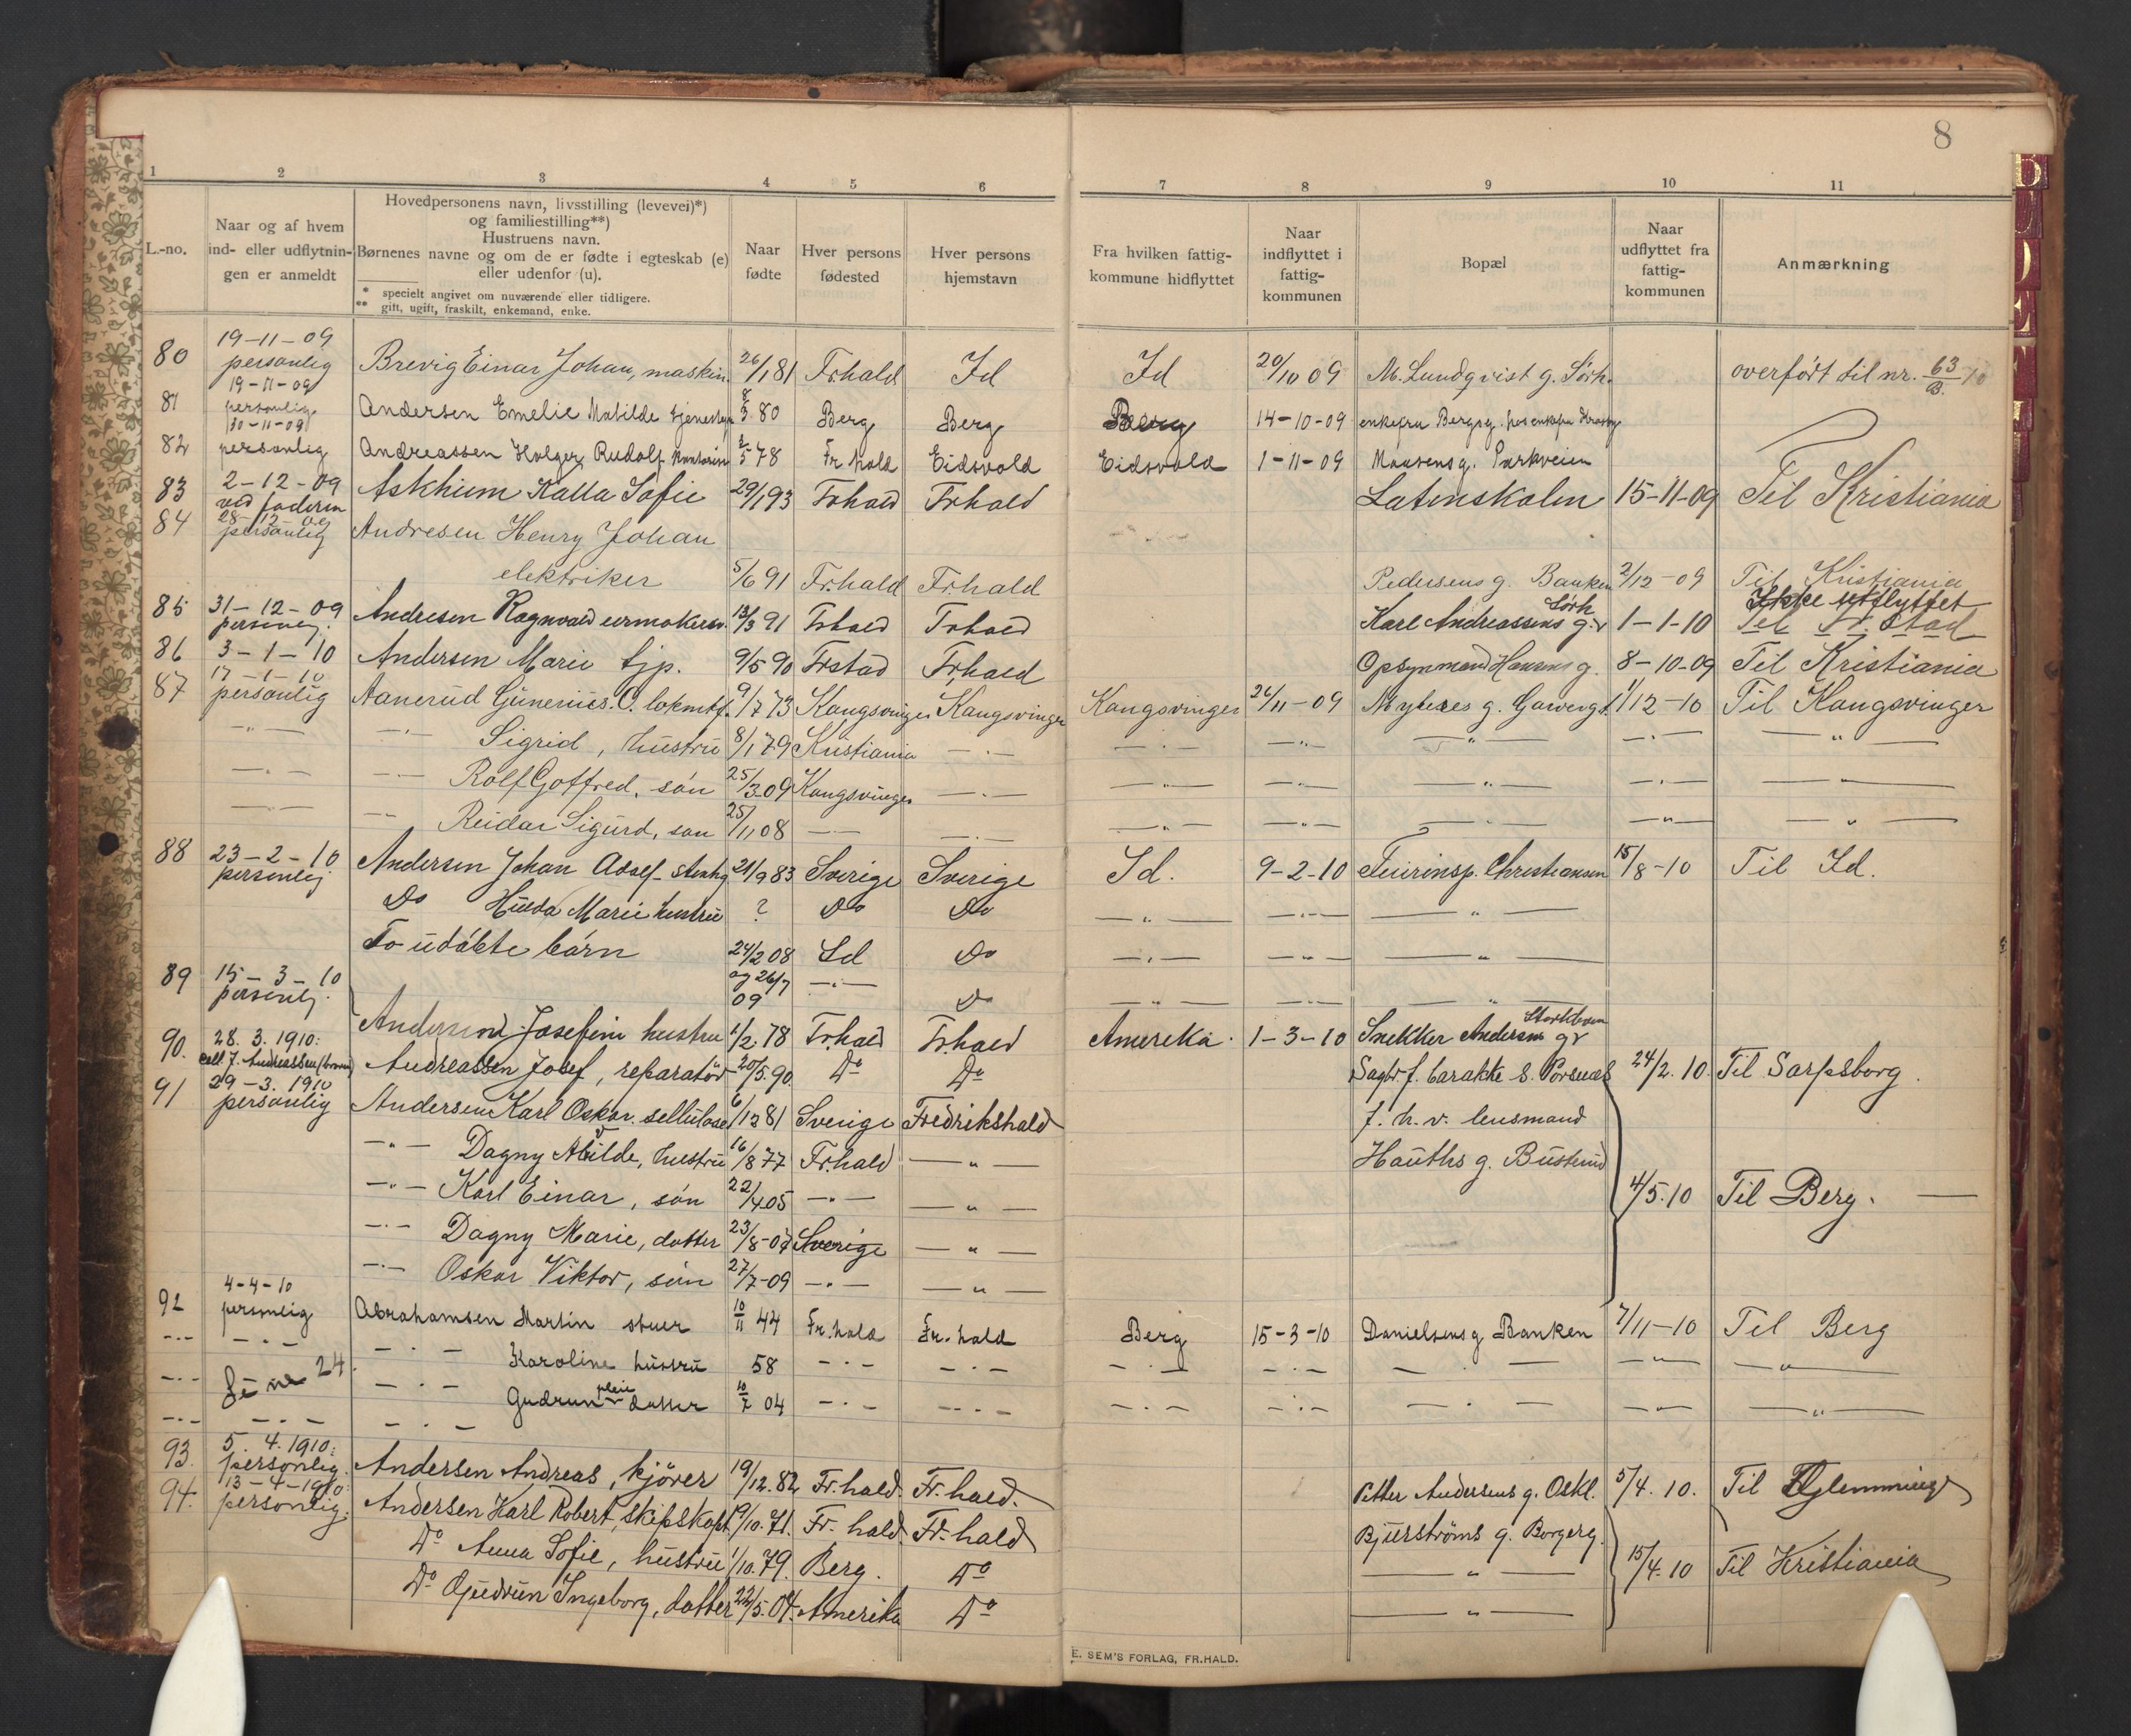 8
1 2 3 4 5 6 7 8 9 10 11
L.-no.
Naar og af hvem
ind- eller udflytnin-
gen er anmeldt
Hovedpersonens navn, livsstilling (levevei)*)
og familiestilling**)
Hustruens navn.
Børnenes navne og om de er fødte i egteskab (e)
eller udenfor (u).
* specielt angivet om nuværende eller tidligere.
** gift, ugift, fraskilt, enkemand, enke.
Naar
fødte
Hver persons
fødested
Hver persons
hjemstavn
Fra hvilken fattig-
kommune hidflyttet
Naar
indflyttet i
fattig-
kommunen
Bopæl
Naar
udflyttet fra
fattig-
kommunen
Anmærkning
80 19-11-09 personlig Brevig Einar Johan, maskin. 26/1 81 Fr.hald Id Id 20/10 09 M. Lundqvist g. Sørh. overført til nr. 63/B. 10
81 19-11-09 personlig Andersen Emelie Matilde tjenestep 8/3 80 Berg Berg Berg 14-10-09 enkefru Bergs g. hos enkefru
82 30-11-09 personlig Andreassen Holger Rudolf 78 Fr hald Eidsvold Eidsvold 1-11-09 Parkveien
83 2-12-09 ved faderen Askhiem Kalla Sofie 29/1 93 Frhald Frhald Latinskolen 15-11-09 Til Kristiania
84 28-12-09 personlig Andresen Henry Johan
elektriker 5/6 91 Fr.hald Fr.hald Pedersens g. Banken 2/12-09 Til Kristiania
Ikke utflyttet
85 31-12-09 personlig. Andresen Ragnvald urmakersv. 13/3 91 Frhald Frhald Karl Andreassens g. Sørh 1-1-10 Til Fr.stad
86 3-1-10 Andersen Marie tjp. 9/5 90 Frstad Fr,hald Opsynmand Hansens g. 8-10-09 Til Kristiania
87 17-1-10 personlig Aanerud Gunerius. O. lokmtf. 9/7 73 Kongsvinger Kongsvinger Kongsvinger 26/11-09 g. 1/12-10 Til Kongsvinger
-"- -"- Sigrid, hustru 8/1 79 Kristiania -"- -"- -"- -"- -"- -"-
-"- -"- Rolf Gotfred, søn 25/3 09 Kongsvinger -"- -"- -"- -"- -"- -"-
-"- -"- Reidar Sigurd, søn 25/11 08 -"- -"- -"- -"- -"- -"- -"-
88 23-2-10 personlig Andersen Johan Adolf stenhg 21/9 83 Sverige Sverige Id. 9-2-10 Feierinsp. Christiansen 15/8-10 Til Id.
Do Hulda Marie hustru ? Do Do -"- -"- -"-
To udøbte børn 24/2 08 Id Do -"- -"- -"-
og 26/7 09 -"- Do -"- -"- -"-
89 15-3-10 personlig. Andersen Josefine hustru 1/2. 78 Fr.hald Fr.hald Amerika. 1-3-10 Snekker Andersens gr
90. 28. 3. 1910: Andreassen Josef, reparatør 20/5. 90 Do Do Sagbr. f. barakke S. Porsnæs 24/2. 10. Til Sarpsborg.
91 29-3. 1910 personlig Andersen Karl Oskar. sellulose 6/12 81 Sverige Fredrikshald f. h. v. lensmand
-"- Dagny Alvilde, hustru 16/8 77 Fr.hald -"- Hauths g. Busterud
-"- Karl Einar, søn 22/4 05 -"- -"- 4/5. 10 Til Berg.
-"- Dagny Marie, datter 23/8-07 Sverige -"-
-"- Oskar Viktor, søn 27/7-09 -"- -"-
92 4-4-10 personlig Abrahamsen Martin stuer 10/11 44 Fr. hald Fr. hald Berg 15-3-10 Danielsens g Banken 7/11-10 Til Berg
-"- -"- -"- Karoline hustru 58 -"- -"- -"- -"- -"- -"- -"-
-"- Se nr 24. -"- Gudrun pleie datter 10/7 04 -"- -"- -"- -"- -"- -"- -"-
-"- -"- -"-
93. 5. 4. 1910: personlig. Andersen Andreas, kjører 19/12. 82 Fr. hald. Fr. hald. Petter Andersens g. Oskl. 5/4. 10. Til Glemminge
94. 13-4-1910: personlig. Andersen Karl Robert, skipskapt 19/10. 71. Fr. hald. Fr. hald Bjurströms g. Borgerg.
Do Anna Sofie, hustru 1/10. 79. Berg. Do -"- 15/4. 10 Til Kristiania
Do Gudrun Ingeborg, datter 22/5. 04. Amerika Do -"-
E. SEM'S FORLAG, FR.HALD.